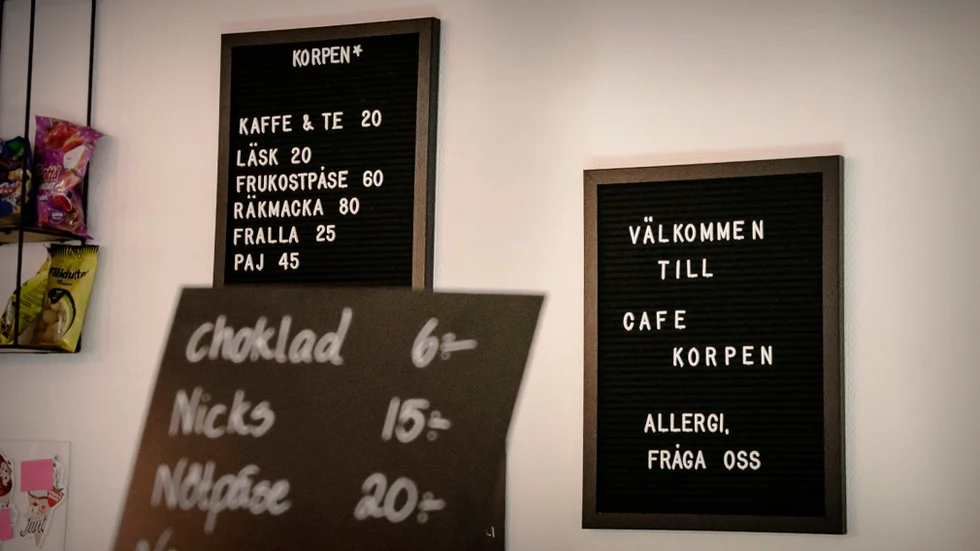 KORPEN*
KAFFE & TE 20
LÄSK 20
FRUKOSTPÅSE 60
RÄKMACKA 80
FRALLA 25
PAJ 45
choklad 6:-
Nicks 15:-
Nötpåse 20:-
VÄLKOMMEN
TILL
CAFE
KORPEN
ALLERGI,
FRÅGA OSS